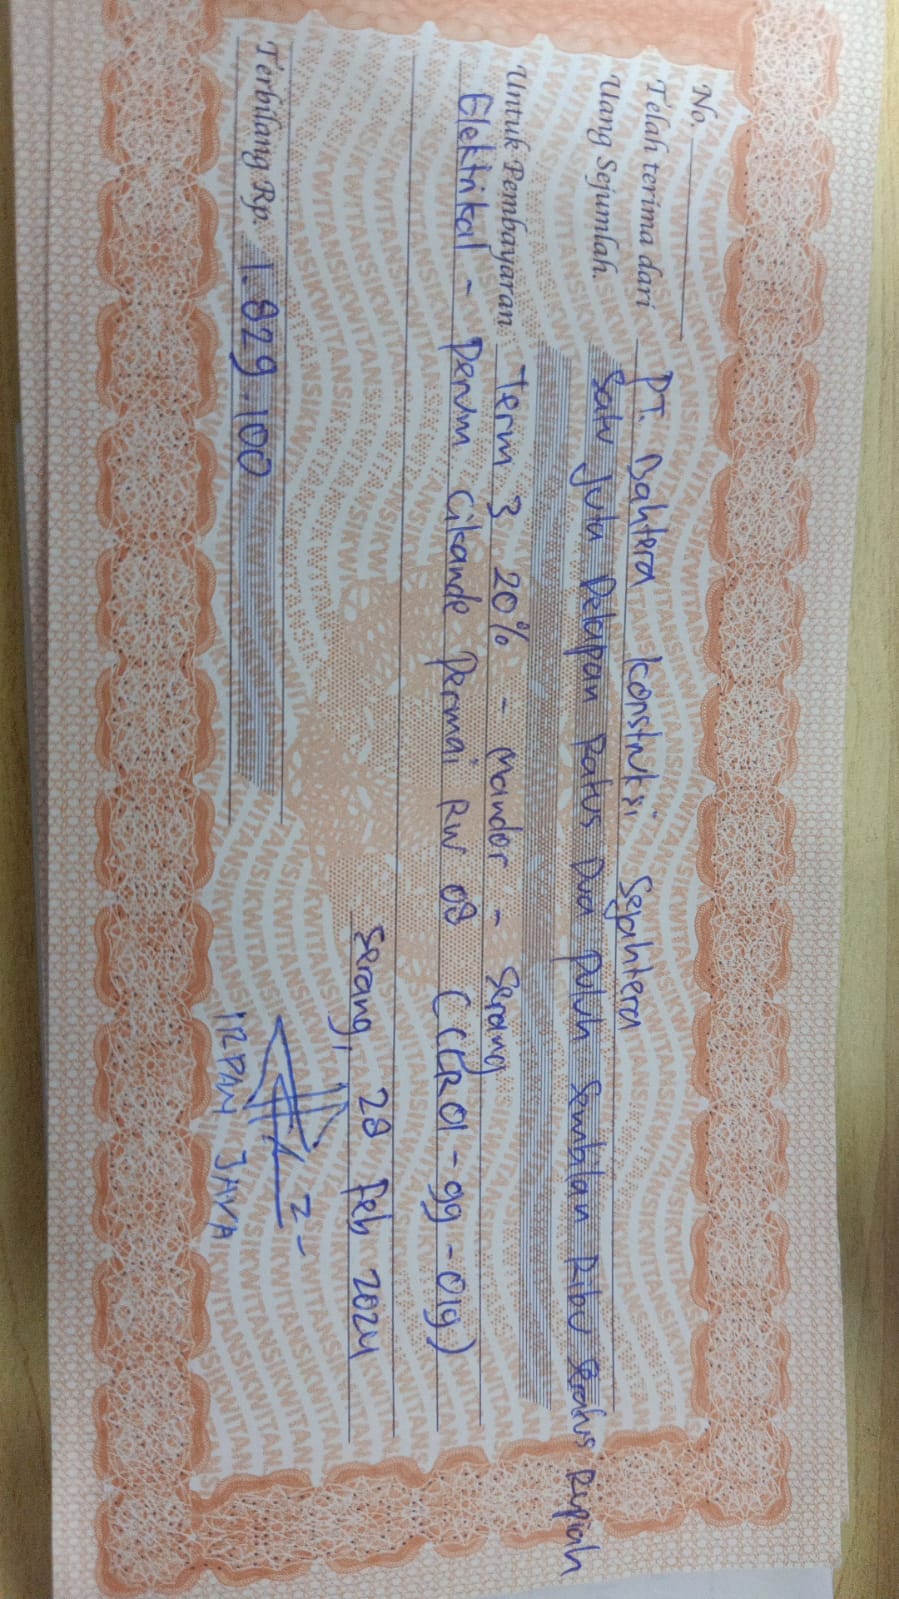 No.
Telah terima dari PT. Bahtera Konstruksi Sejahtera
Uang Sejumlah. Satu Juta Delapan Ratus Dua puluh Sembilan Ribu Seratus Rupiah
Untuk Pembayaran Term 3 20% - Mandor - Serang
Elektrikal - Perum Cikande Permai RW 08 (CKR01-99-019)
Serang, 28 Feb 2024
Terbilang Rp. 1.829.100
IRPAN JAYA